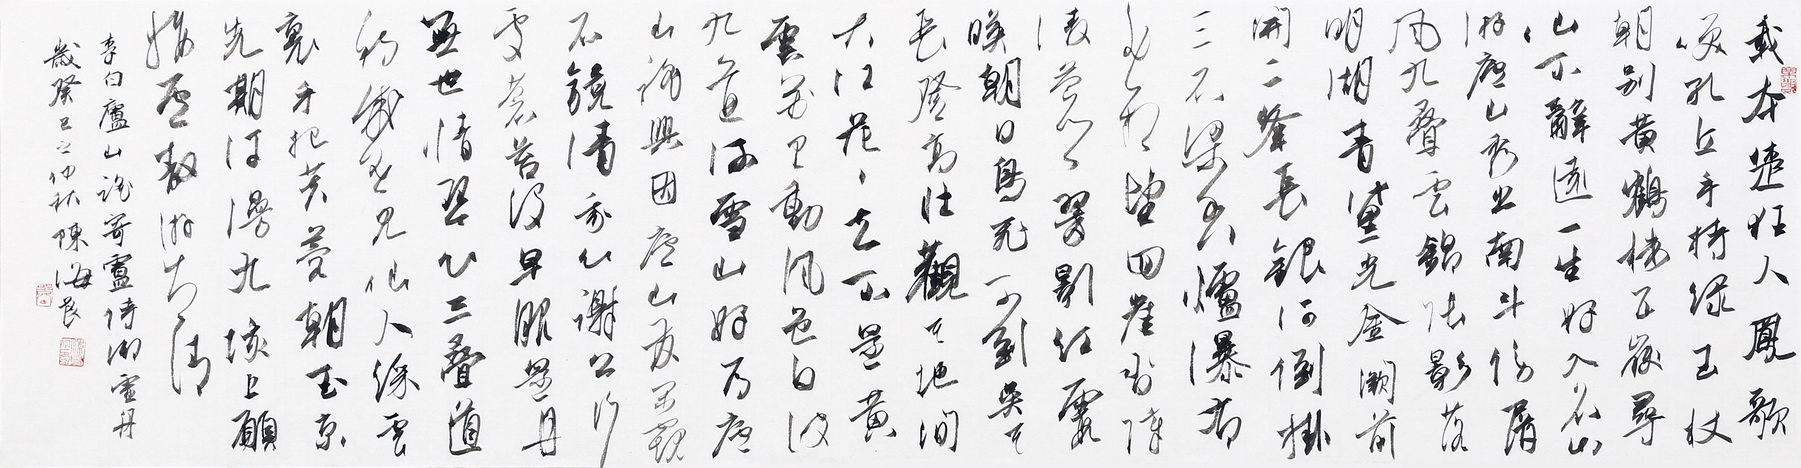 我本楚狂人鳳歌
笑孔丘手持綠玉杖
朝別黃鶴樓五嶽尋
仙不辭遠一生好入名山
游廬山秀出南斗傍屏
風九疊雲錦張影落
明湖青黛光金闕前
開二峰長銀河倒掛
三石梁香爐瀑布
遙相望迴崖沓嶂
凌蒼蒼翠影紅霞
映朝日鳥飛不到吳天
長登高壯觀天地間
大江茫茫去不還黃
雲萬里動風色白波
九道流雪山好為廬
山謠興因廬山發閑窺
石鏡清我心謝公行
處蒼苔沒早服還丹
無世情琴心三疊道
初成遙見仙人綵雲
裏手把芙蓉朝玉京
先期汗漫九垓上願
接盧敖游太清
李白廬山謠寄盧侍御虛舟
歲癸巳之仲秋陳海良